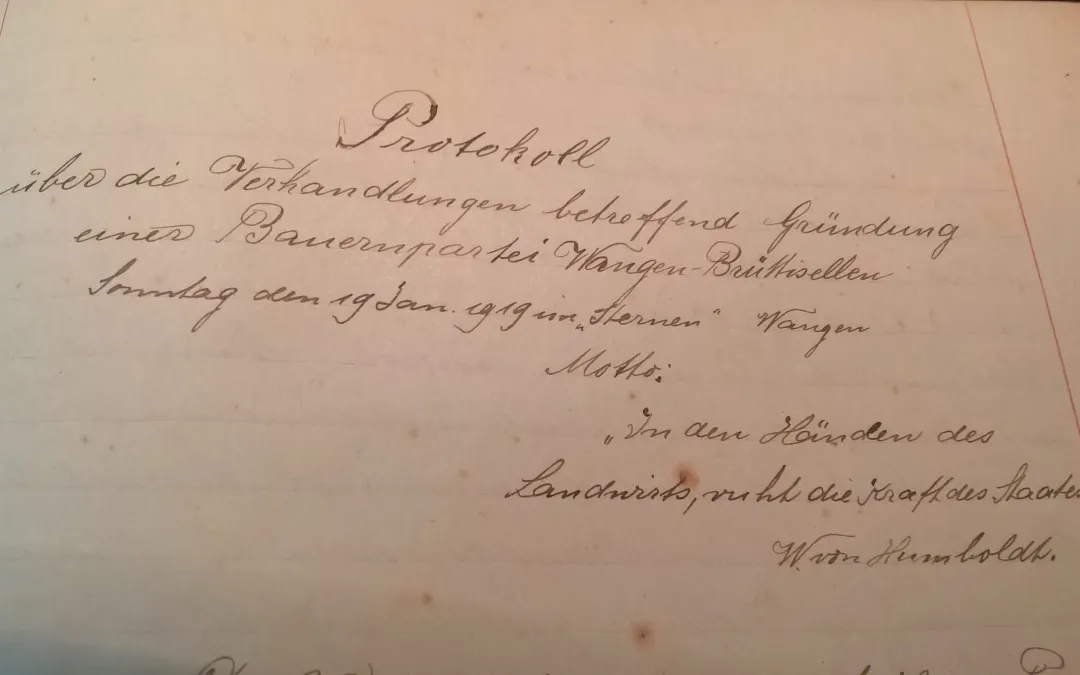 Protokoll
über die Verhandlungen betreffend Gründung
einer Bauernpartei Wangen-Brüttisellen
Sonntag den 19 Jan. 1919 im „Sternen“ Wangen
Motto:
„In den Händen des
Landwirts, ruht die Kraft des Staates
W. von Humboldt.